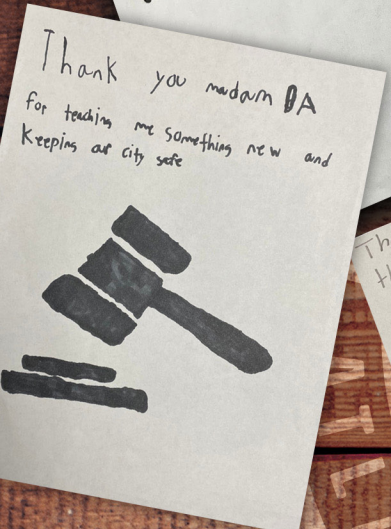 Thank you madam DA
for teaching me something new and
Keeping our city safe
Th